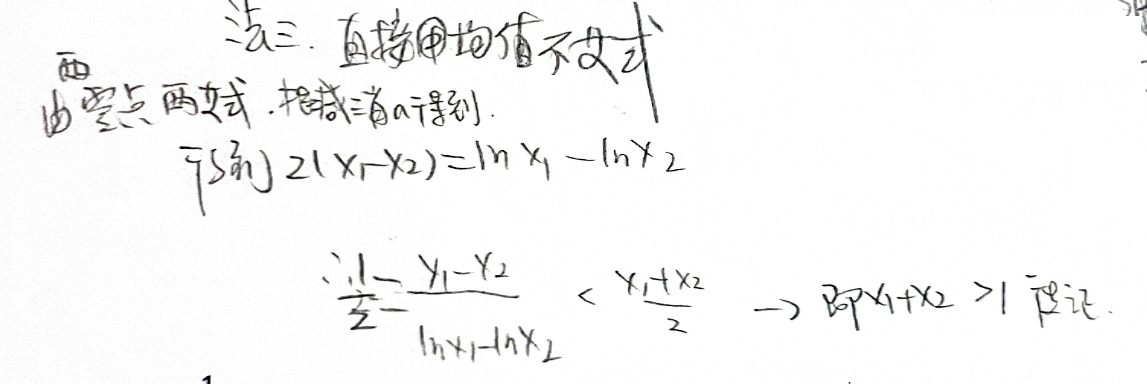 法三.直接用均值不等式
由两零点两等式.相减消a得到.
得到 2(x₁-x₂)=ln x₁ -ln x₂
∴ 1/2 = (x₁-x₂)/(ln x₁-ln x₂) < (x₁+x₂)/2 → 即x₁+x₂ >1 得证.